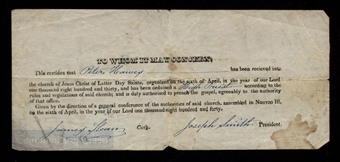 TO WHOM IT MAY CONCERN:
This certifies that Peter Hawes has been recieved into
the church of Jesus Christ of Latter Day Saints, organized on the sixth of April, in the year of our Lord
one thousand eight hundred and thirty, and has been ordained a High Priest according to the
rules and regulations of said church; and is duly authorized to preach the gospel, agreeably to the authority
of that office.
Given by the direction of a general conference of the authorities of said church, assembled in Nauvoo Ill,
on the sixth of April, in the year of our Lord one thousand eight hundred and forty.
James Sloan Clerk. Joseph Smith President.